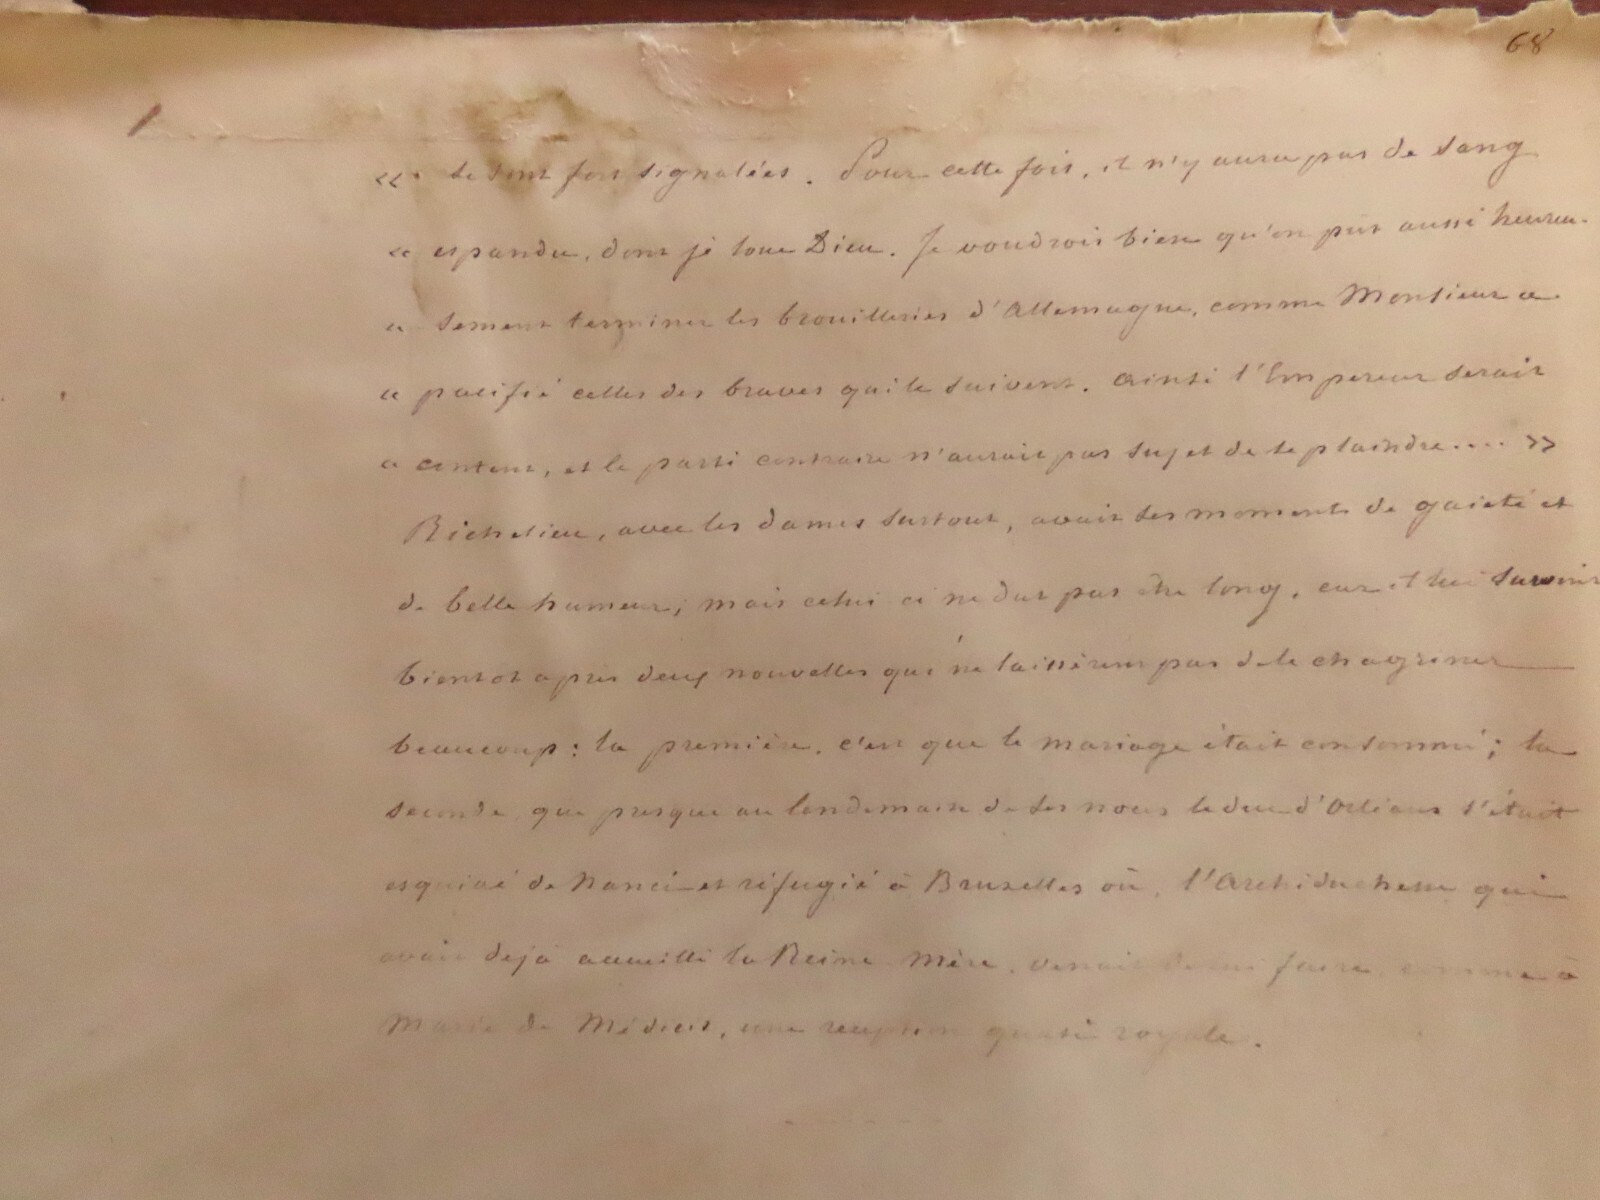 68
« se sont fort signalées. Pour cette fois, il n'y aura pas de sang
« espandu, dont je loue Dieu. Je voudrois bien qu'on pût aussi heureu-
« sement terminer les brouilleries d'Allemagne, comme Monsieur a
« pacifié celles des braves qui le suivent. Ainsi l'Empereur serait
« content, et le parti contraire n'aurait pas sujet de se plaindre.... »
Richelieu, avec les dames surtout, avait ses moments de gaieté et
de belle humeur; mais celui ci ne dut pas être long, car il lui survint
bientot après deux nouvelles qui ne laissèrent pas de le chagriner
beaucoup: la première, c'est que le mariage était consommé; la
seconde, que presque au lendemain de ses noces le duc d'Orléans s'était
esquivé de Nanci et réfugié à Bruxelles où, l'Archiduchesse qui
avait déjà accueilli la Reine Mère, venait de lui faire, comme à
Marie de Médicis, une reception quasi royale.